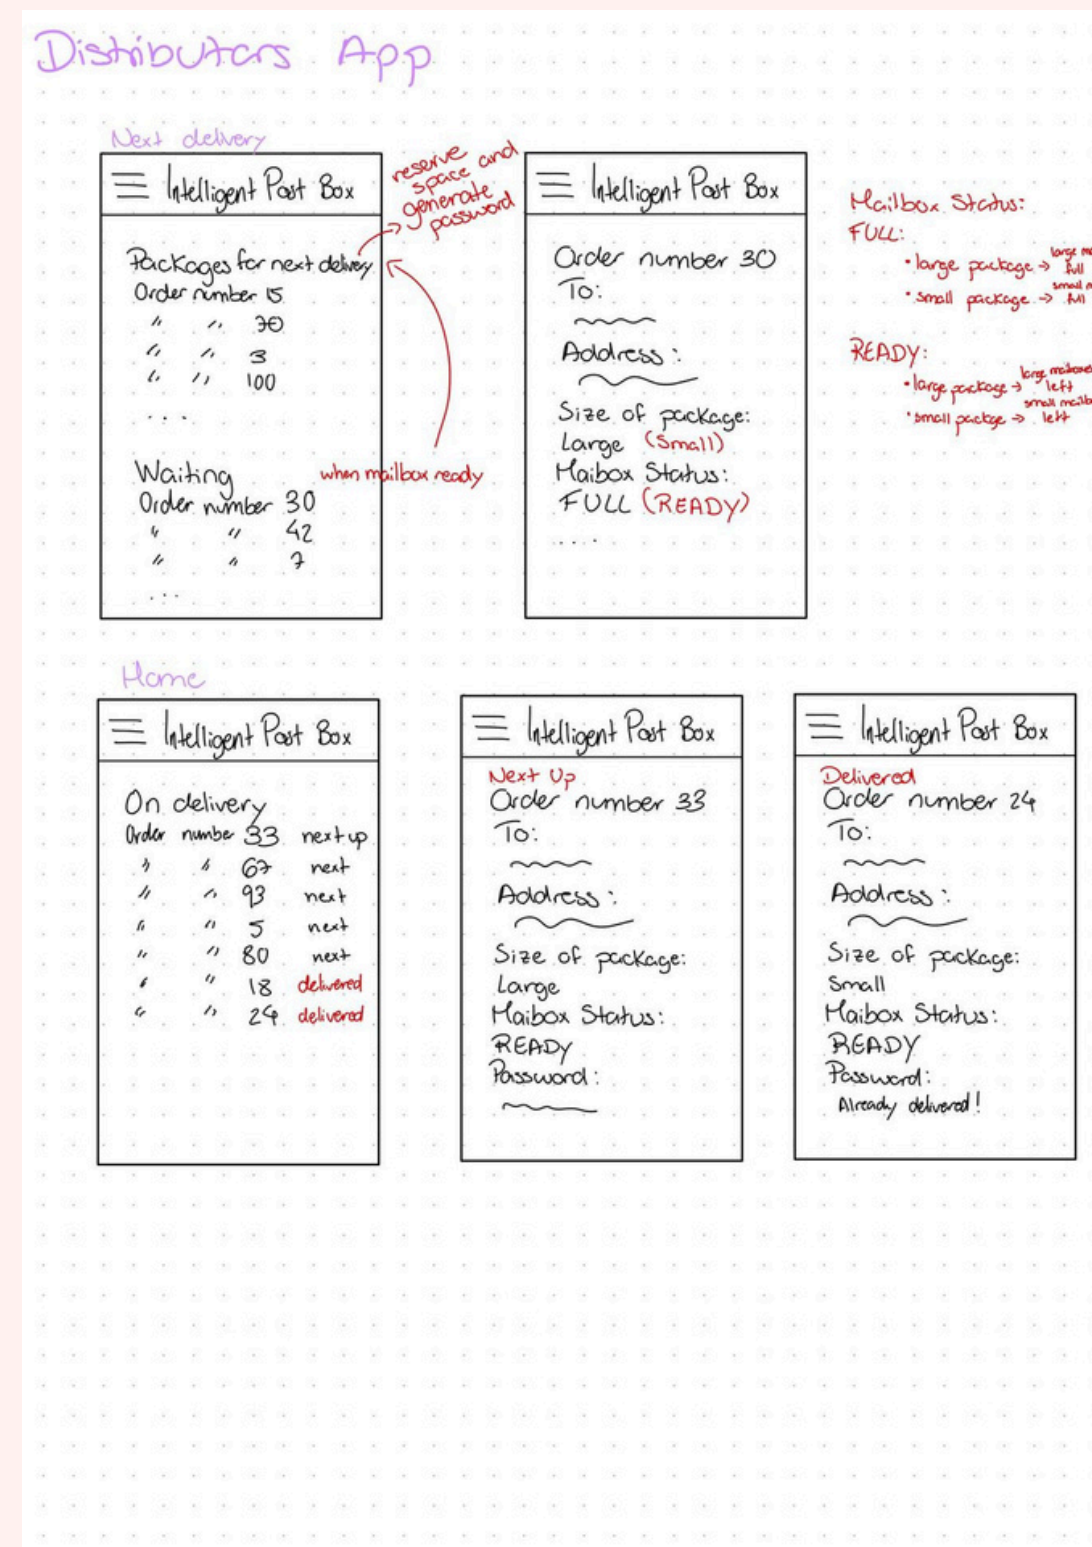 Distributors App
Next delivery
Intelligent Post Box
Packages for next delivery
Order number 15
" " 70
" " 3
" " 100
...
Waiting
Order number 30
" " 42
" " 7
...
reserve
space and
generate
password
when mailbox ready
Intelligent Post Box
Order number 30
To:
Address:
Size of package:
Large (Small)
Maibox Status:
FULL (READY)
....
Mailbox Status:
FULL:
• large package → large
full
• small package → small
full
READY:
• large package → large
left
• small packge → small
left
Home
Intelligent Post Box
On delivery
Order number 33 next up
" " 67 next
" " 93 next
" " 5 next
" " 80 next
" " 18 delivered
" " 24 delivered
Intelligent Post Box
Next Up
Order number 33
To:
Address:
Size of package:
Large
Maibox Status:
READY
Password:
Intelligent Post Box
Delivered
Order number 24
To:
Address:
Size of package:
Small
Maibox Status:
READY
Password:
Already delivered!